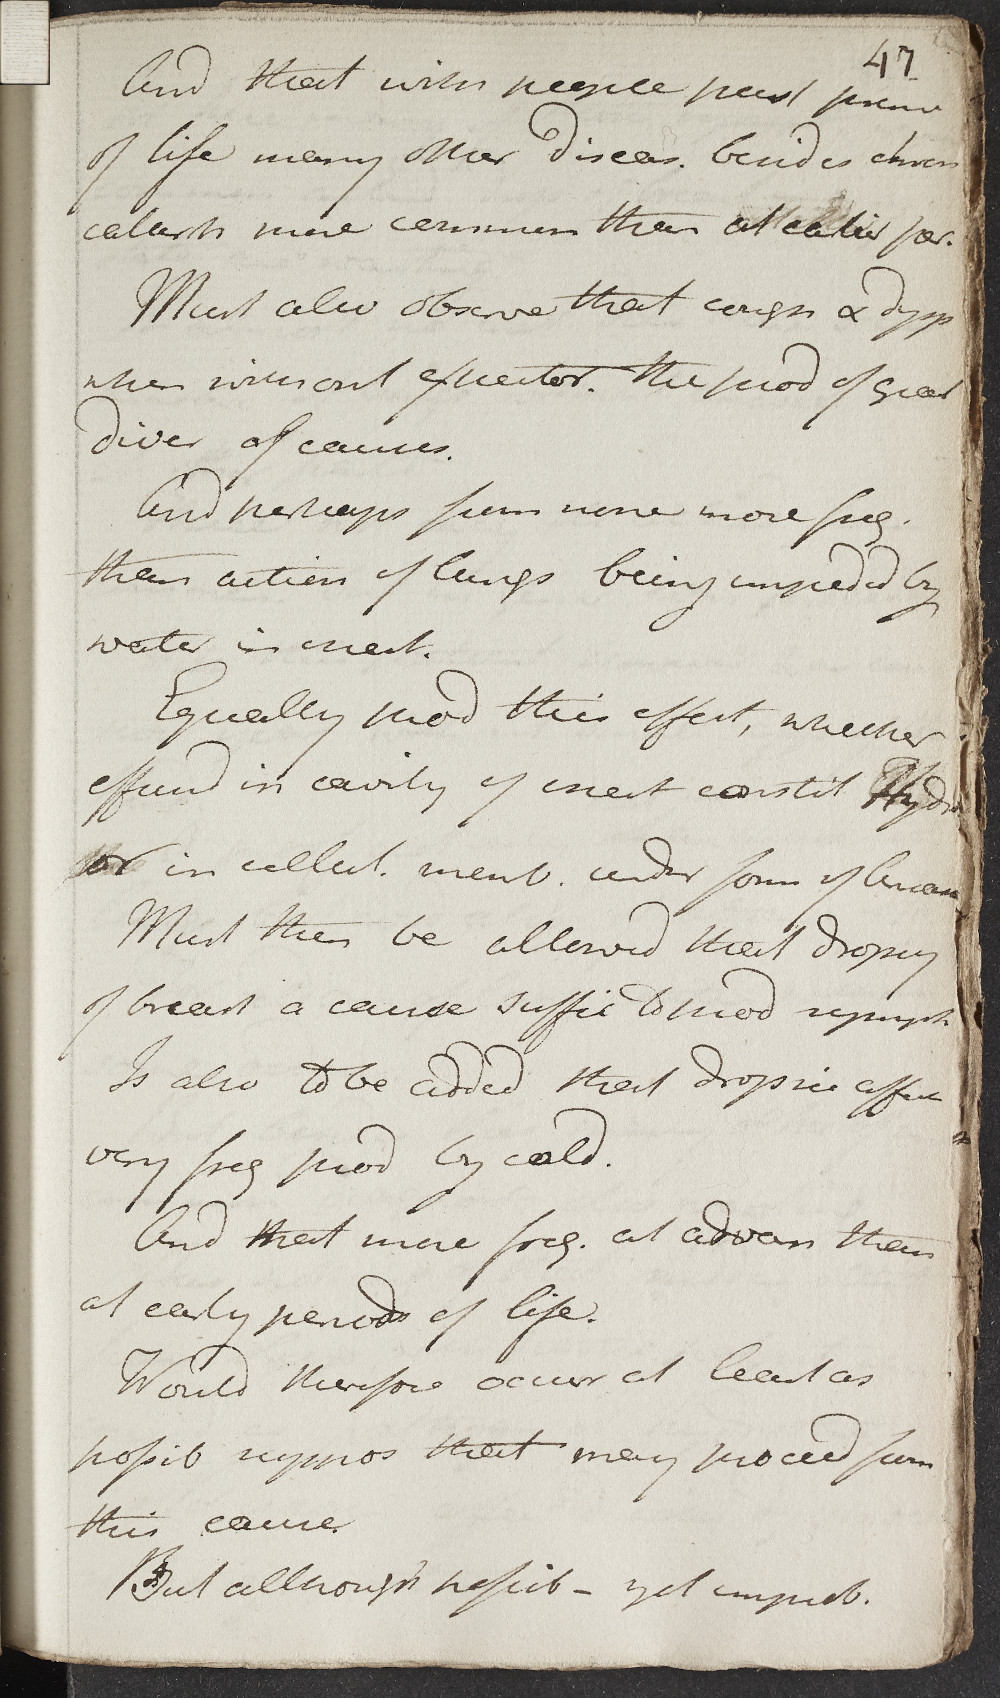 47
And that with people past prime
of life many other diseas. besides chron
catarrh more common than at earlier per.
Must also observe that cough & dysp
when without expector. the prod of great
diver of causes.
And perhaps from none more freq.
than action of lungs being impeded by
water in chest.
Equally prod this effect, whether
effund in cavity of chest constit Hydro
or in cellul. memb. under form of Anas
Must then be allowed that dropsy
of breast a cause suffic to prod symph
Is also to be added that dropsic affect
very freq prod by cold.
And that more freq. at advan than
at early periods of life.
Would therefore occur at least as
possib suppos that may proceed from
this cause.
But although possib - yet improb.